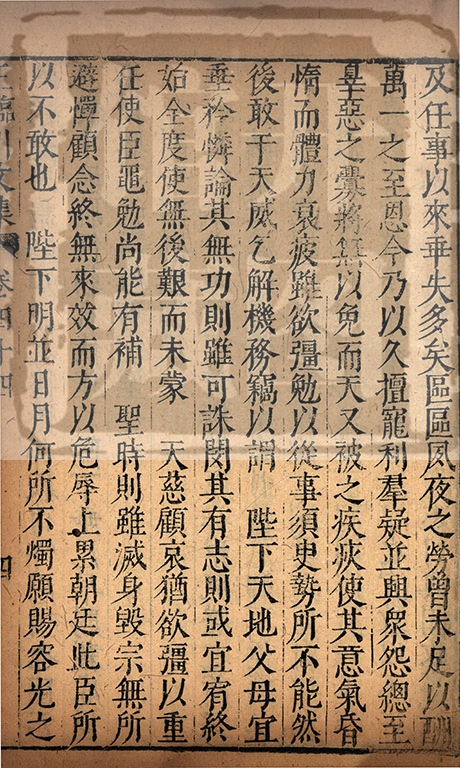 及任事以來乖失多矣區區夙夜之勞曾未足以酬
萬一之至恩今乃以久擅寵利羣疑並興衆怨總至
辠惡之釁將無以免而天又被之疾疢使其意氣昏
惰而體力衰疲雖欲彊勉以從事須臾勢所不能然
後敢干天威乞解機務竊以謂 陛下天地父母宜
垂矜憐論其無功則雖可誅閔其有志則或宜宥終
始全度使無後艱而未蒙 天慈顧哀猶欲彊以重
任使臣黽勉尚能有補 聖時則雖滅身毀宗無所
避憚顧念終無來效而方以危辱上累朝廷此臣所
以不敢也 陛下明並日月何所不燭願賜容光之
王臨川文集 卷四十四 四